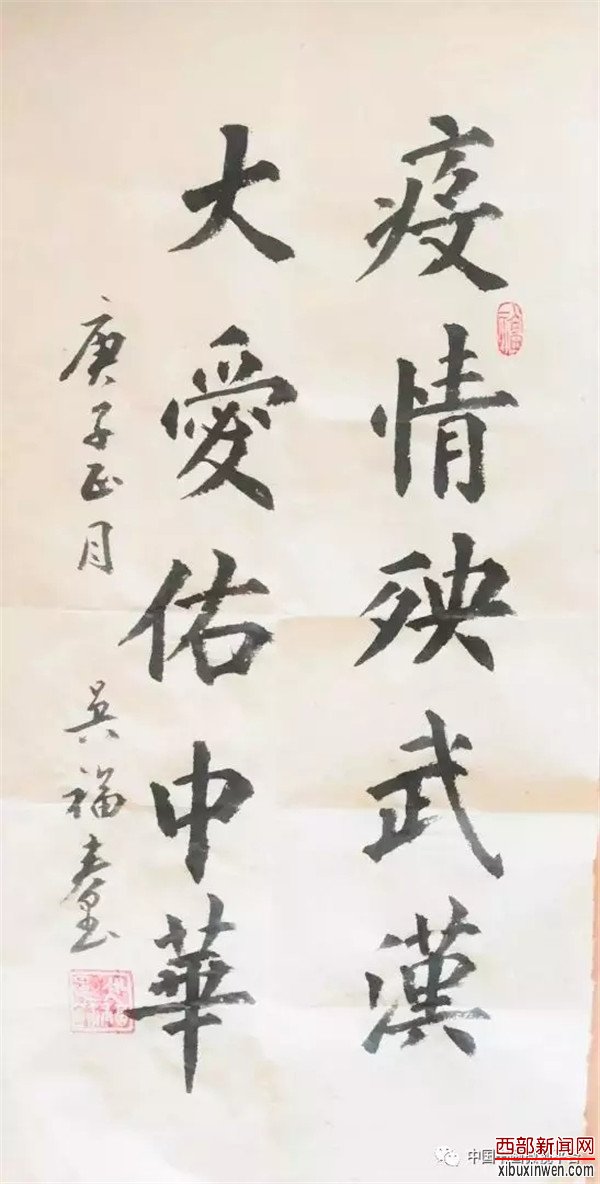 疫情殃武漢
大愛佑中華
庚子正月 吳福
西部新闻网
xibuxinwen.com